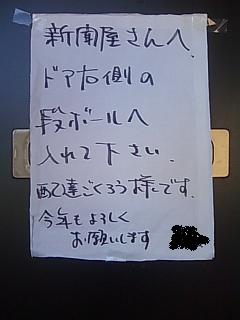 新聞屋さんへ
ドア右側の
段ボールへ
入れて下さい.
配達ごくろう様です.
今年もよろしく
お願いします